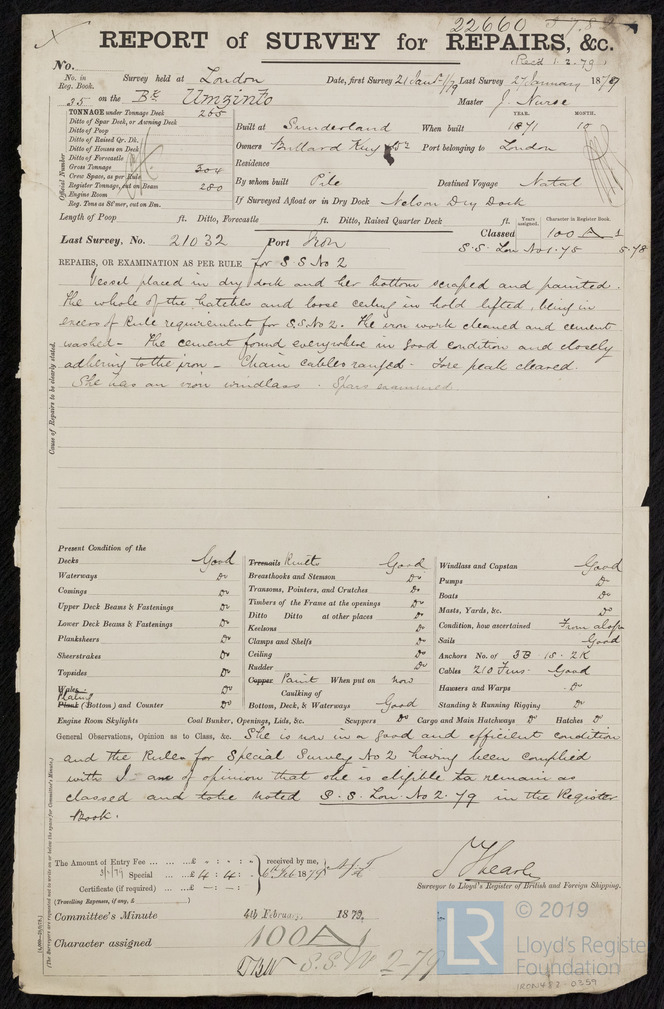 22660
REPORT of SURVEY for REPAIRS, &c.
No.
Rec'd 1.2.79
No. in Reg. Book. Survey held at London Date, first Survey 21 Jany /79 Last Survey 27 January 1879
35 on the Bk Umzinto Master J. Nurse
TONNAGE under Tonnage Deck 255
Ditto of Spar Deck, or Awning Deck
Ditto of Poop
Ditto of Raised Qr. Dk.
Ditto of Houses on Deck
Ditto of Forecastle
Gross Tonnage 304
Crew Space, as per Rule
Register Tonnage, cut on Beam 280
Engine Room
Reg. Tons as St'mer, cut on Bm.
Official Number
YEAR. MONTH.
Built at Sunderland When built 1871 10
Owners Bullard King & Co Port belonging to London
Residence
By whom built Pile Destined Voyage Natal
If Surveyed Afloat or in Dry Dock Nelson Dry Dock
Length of Poop ft. Ditto, Forecastle ft. Ditto, Raised Quarter Deck ft.
Years assigned. Character in Register Book.
Classed 100 A 1
Last Survey, No. 21032 Port Iron
S.S. Lon No 1.75 5.78
REPAIRS, OR EXAMINATION AS PER RULE for S S No 2
Vessel placed in dry dock and her bottom scraped and painted.
The whole of the hatches and loose ceiling in hold lifted, being in
excess of Rule requirement for S.S No 2. The iron work cleaned and cement
washed - The cement found everywhere in good condition and closely
adhering to the iron - Chain cables ranged - Fore peak cleared.
She has an iron windlass. Spars examined.
Cause of Repairs to be clearly stated.
Present Condition of the
Decks Good
Waterways Do
Comings Do
Upper Deck Beams & Fastenings Do
Lower Deck Beams & Fastenings Do
Planksheers Do
Sheerstrakes Do
Topsides Do
Wales Do
Plating
Plank (Bottom) and Counter Do
Treenails Rivets Good
Breasthooks and Stemson Do
Transoms, Pointers, and Crutches Do
Timbers of the Frame at the openings Do
Ditto Ditto at other places Do
Keelsons Do
Clamps and Shelfs Do
Ceiling Do
Rudder Do
Copper Paint When put on now
Caulking of
Bottom, Deck, & Waterways Good
Windlass and Capstan Good
Pumps Do
Boats Do
Masts, Yards, &c. Do
Condition, how ascertained From aloft
Sails Good
Anchors No. of 3B. 1S. 2K
Cables 210 Fms. Good
Hawsers and Warps Do
Standing & Running Rigging Do
Engine Room Skylights Coal Bunker, Openings, Lids, &c. Scuppers Do Cargo and Main Hatchways Do Hatches Do
General Observations, Opinion as to Class, &c. She is now in a good and efficient condition
and the Rules for Special Survey No 2 having been complied
with I am of opinion that she is eligible to remain as
classed and to be noted S.S. Lon. No 2.79 in the Register
Book.
(The Surveyors are requested not to write on or below the space for Committee's Minute.)
The Amount of Entry Fee ... ... ...£ " : " : "
3/2/79 Special ... ...£ 4 : 4 : -
Certificate (if required) ... ...£ - : - :
(Travelling Expenses, if any, £ )
received by me,
6th Feb 1879
Surveyor to Lloyd's Register of British and Foreign Shipping.
Committee's Minute 4th February, 1879.
Character assigned 100 A 1
S.S. No 2-79
LR
© 2019
Lloyd's Register
Foundation
IRON482-0359